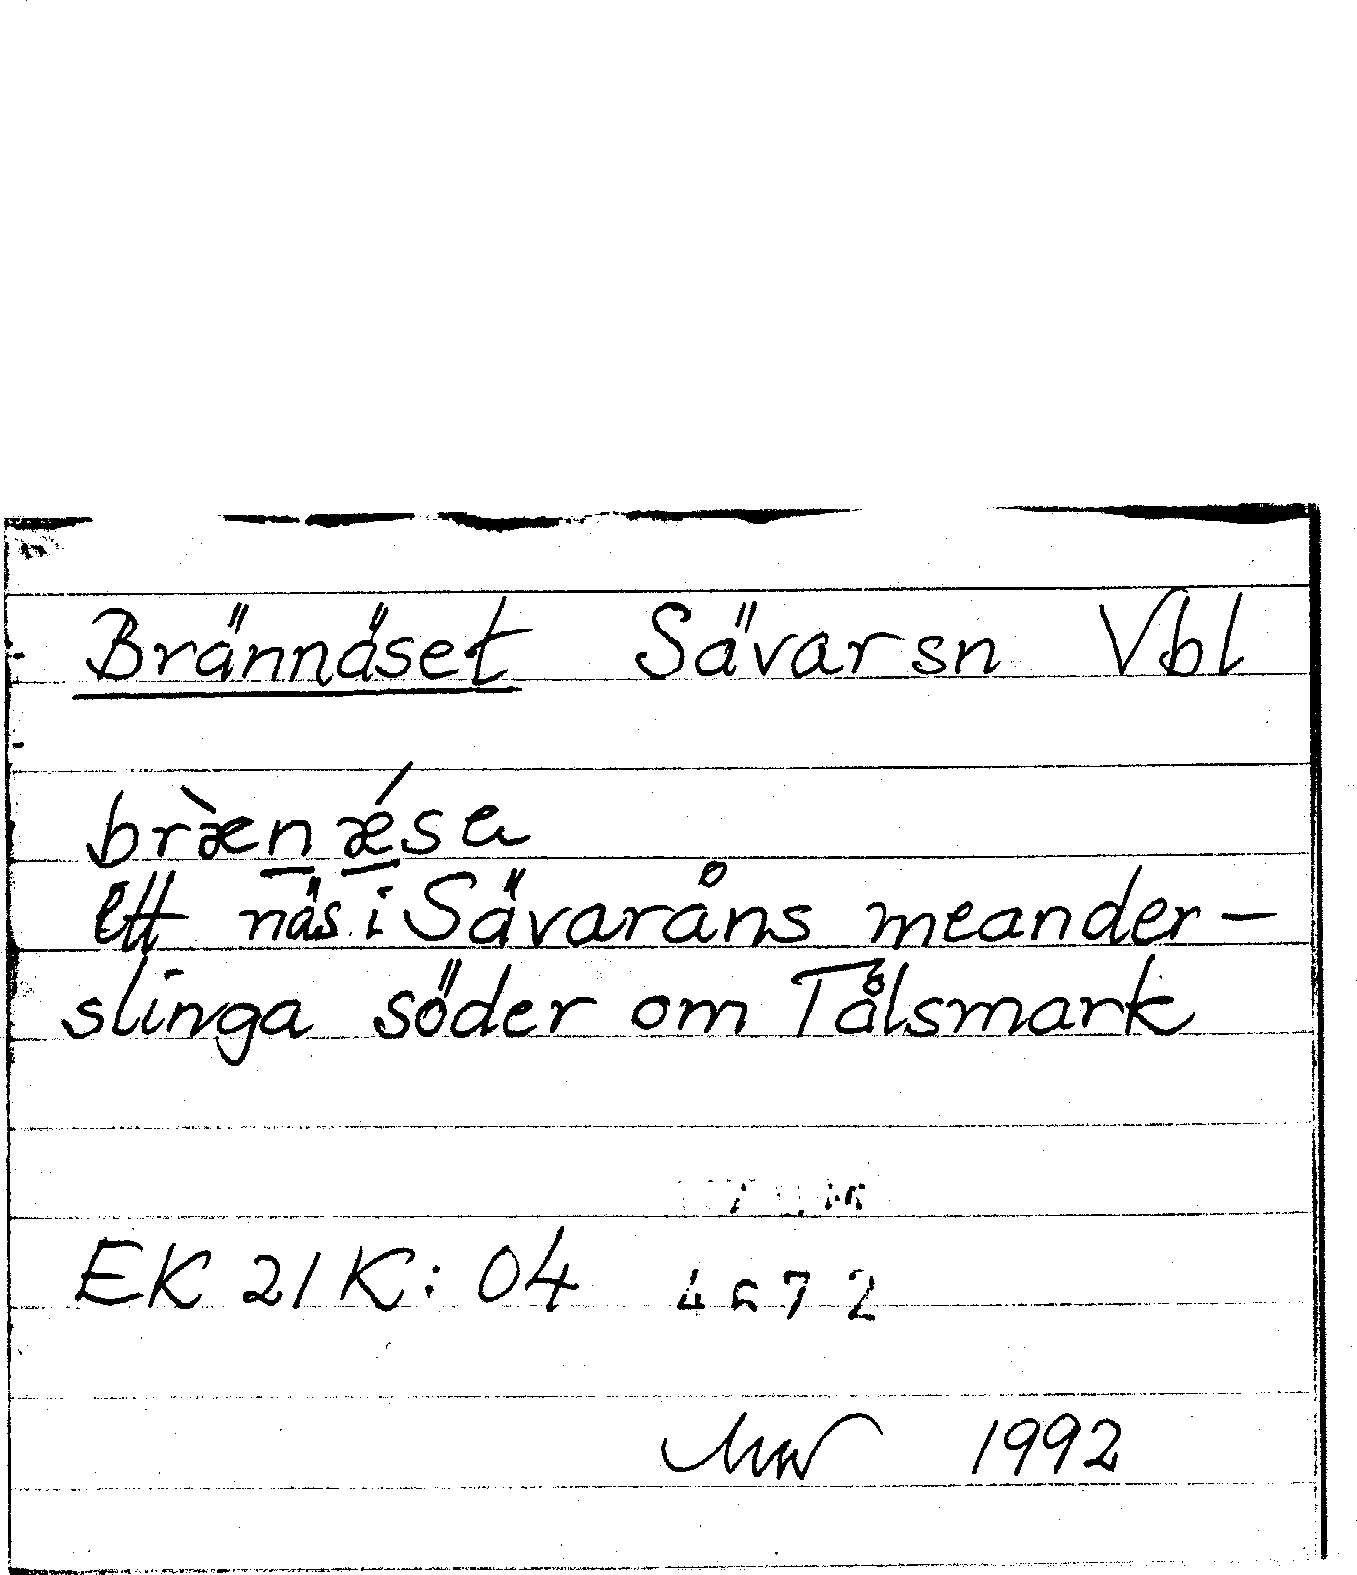 Brännäset Sävar sn Vbl
bræ̀n̲ǽ̲sə
Ett näs i Sävaråns meander-
slinga söder om Tålsmark
EK 21 K: 04 4672
1992